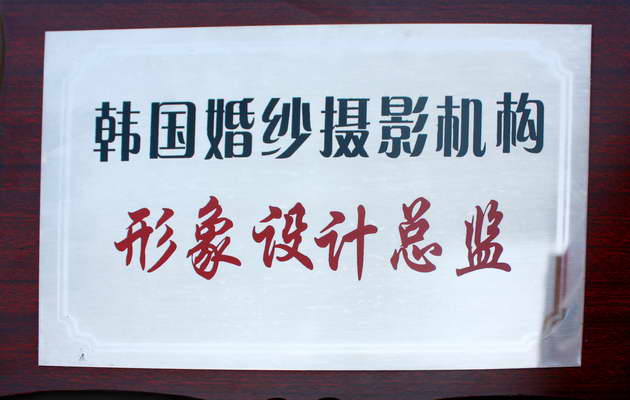 韩国婚纱摄影机构
形象设计总监